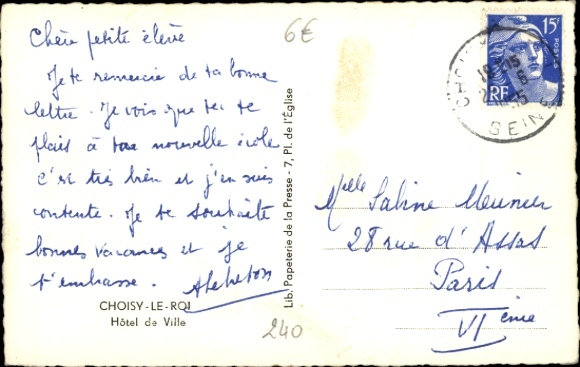 Chère petite élève
Je te remercie de ta bonne
lettre. Je vois que tu te
plais à ta nouvelle école
c'est très bien et j'en suis
contente. Je te souhaite
bonnes vacances et je
t'embrasse.
CHOISY-LE-ROI
Hôtel de Ville
Lib. Papeterie de la Presse - 7, Pl. de l'Église
6€
240
15F
POSTES
RF
SEINE
Melle Sabine Meunier
28 rue d'Assas
Paris
VIème